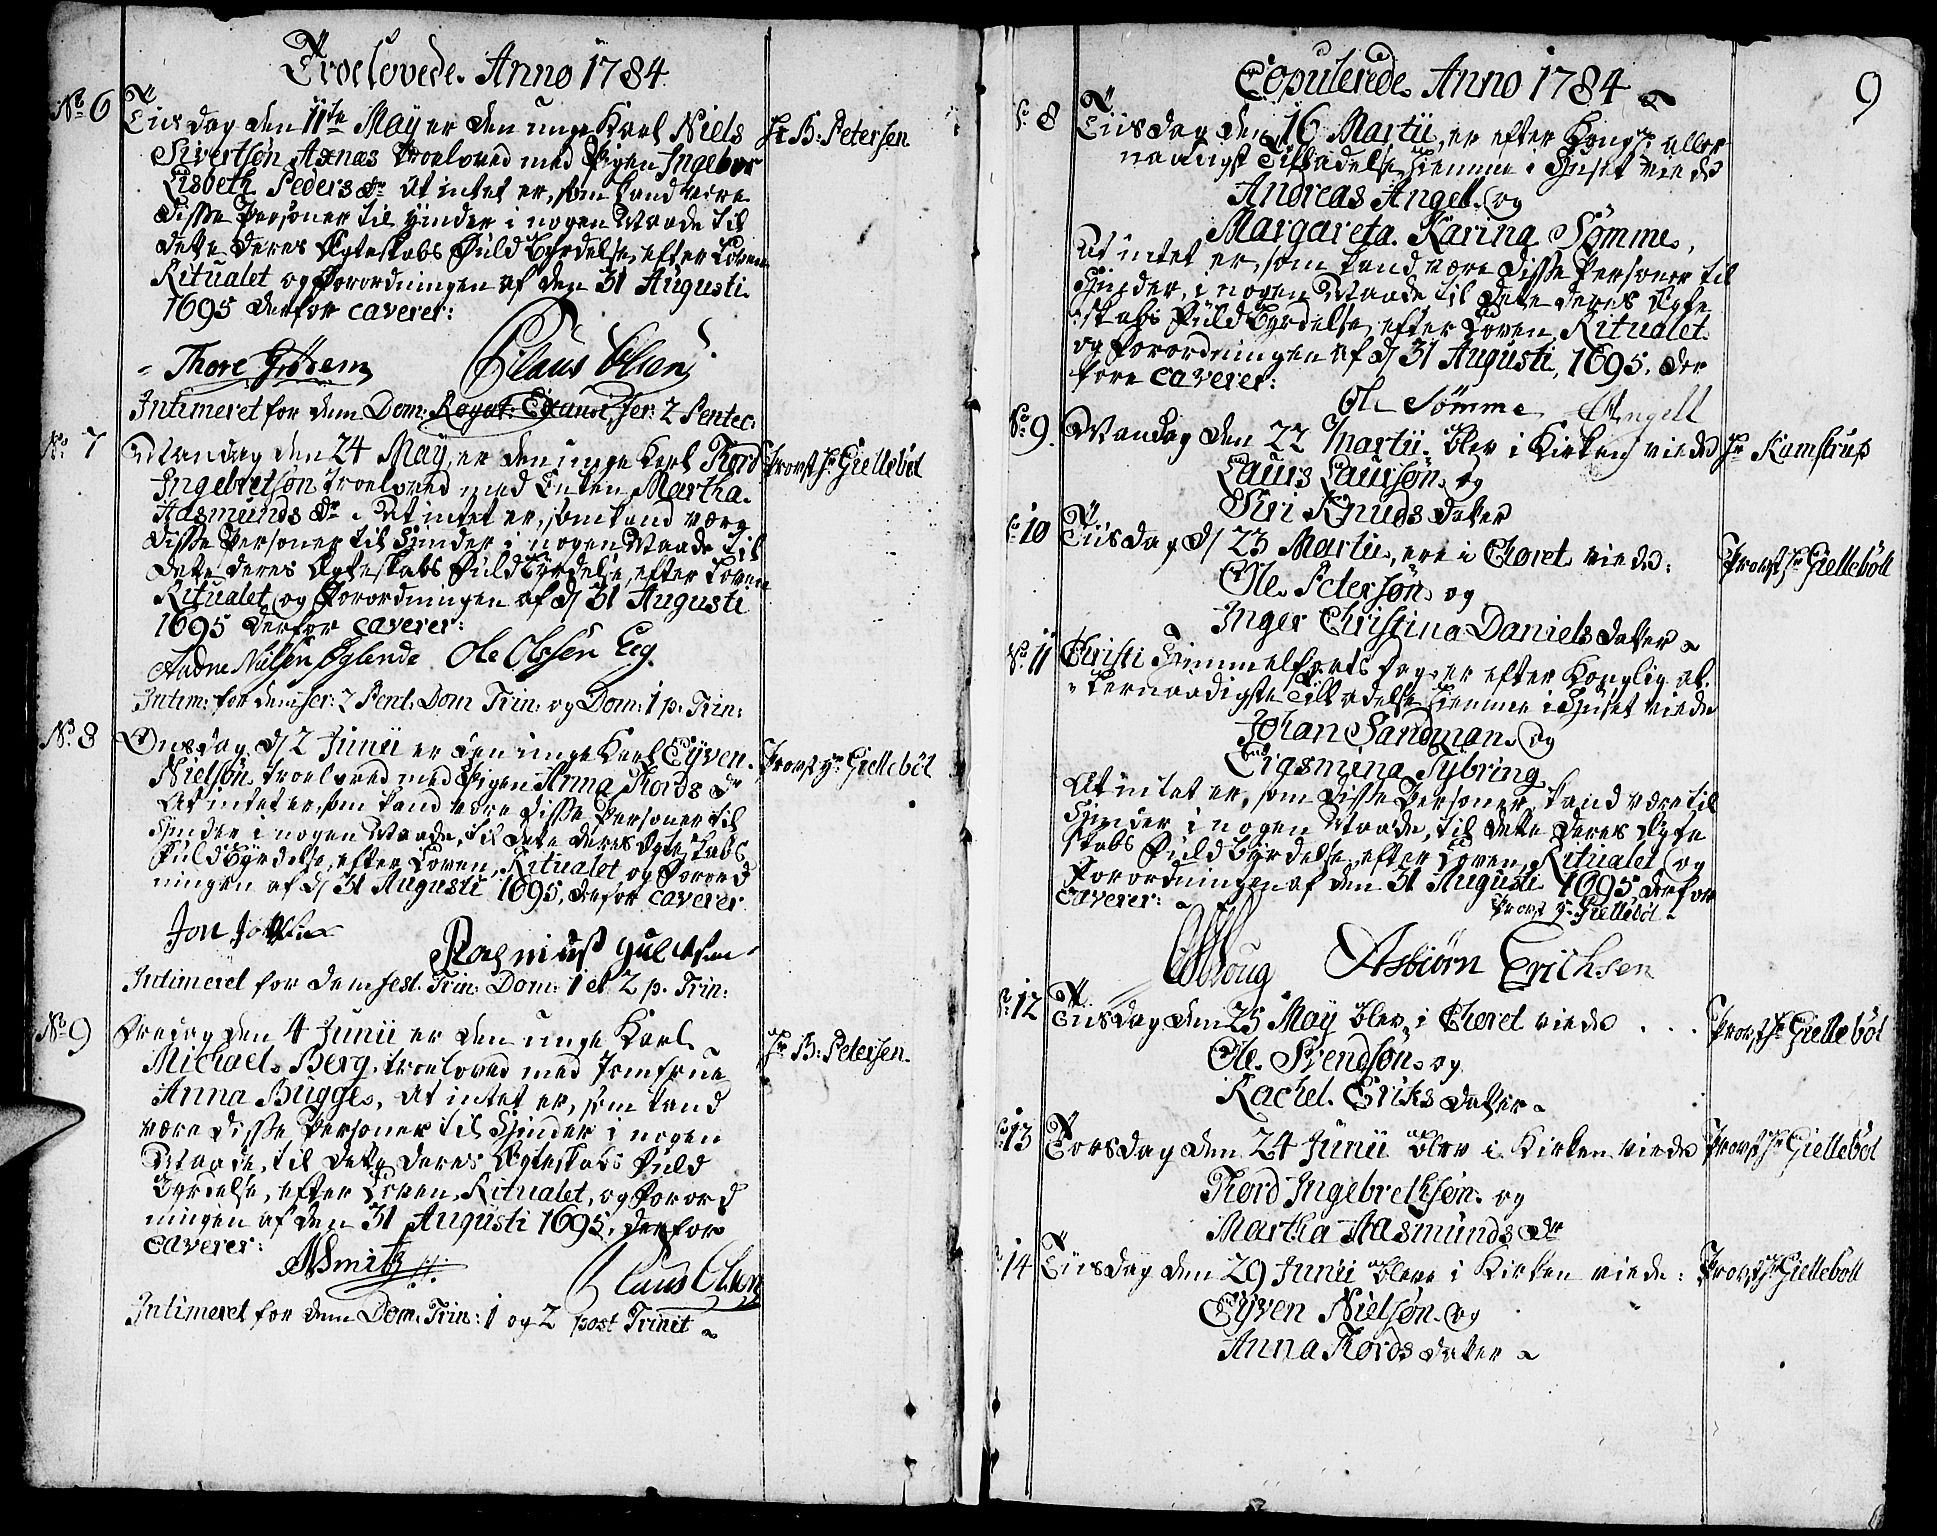 Troelovede Anno 1784
No 6 Tiisdag den 11te May er den unge Karl Niels
Hr B: Petersen
Sivertsøn Axnæs troeloved med Pigen Ingebor
Lisbeth Peders Dr At intet er, som kand være
disse Personer til Hinder i nogen Maade til
dette deres Ægteskabs Fuldbyrdelse, efter Loven
Ritualet og Forordningen af den 31 Augusti
1695 derfor caverer:
Claus Olsen
Intimeret for dem Dom: Rogat: Exaudi, fer: 2 Pentec:
No 7 Mandag den 24 May, er den unge Karl Thord
Provst Hr Giellebøl
Ingebretsøn troeloved med Enken Martha
Aasmunds Dr. At intet er, som kand være
disse Personer til Hinder i nogen Maade til
dette deres Ægteskabs Fuldbyrdelse, efter Loven
Ritualet og Forordningen af d/ 31 Augusti
1695 derfor caverer:
Nilsen Øglende Ole Olsen Eeg
Intim: for dem fer: 2 Pent. Dom Trin: og Dom: 1 p. Trin:
No 8 Onsdag d/ 2 Junii er den unge Karl Eyven
Provst Hr Giellebøl
Nielsøn troeloved med Pigen Anna Thords Dr
At intet er, som kand være disse Personer til
Hinder i nogen Maade, til dette deres Ægteskabs
Fuldbyrdelse, efter Loven, Ritualet og Forord
ningen af d/ 31 Augusti 1695, derfor caverer
Intimeret for dem fest. Trin: Dom: 1 et 2 p. Trin:
No 9 Fredag den 4 Junii er den unge Karl
Hr B: Petersen.
Michael Berg, troeloved med Jomfrue
Anna Bugge, At intet er, som kand
være disse Personer til Hinder i nogen
Maade, til dette deres Ægteskabs Fuld
byrdelse, efter Loven, Ritualet, og Forord
ningen af den 31 Augusti 1695, derfor
caverer:
Smith
Claus Olsen
Intimeret for dem Dom. Trin: 1 og 2 post Trinit
Copulerede Anno 1784
9
No 8 Tiisdag den 16 Martii, er efter Kongl: aller
naadigst Tilladelse hiemme i Huset viede
Andreas Angell og
Margareta Karina Sømme,
At intet er, som kand være disse Personer til
Hinder, i nogen Maade til dette deres Ægte
skabs Fuldbyrdelse efter Loven, Ritualet
og Forordningen af d/ 31 Augusti, 1695. der
fore caverer:
Ole Sømme Angell
No 9. Mandag den 22 Martii blev i Kirken viede
Hr Kamstrup
Laurs Laursøn og
Siri Knuds datter
No 10 Tiisdag d/ 23 Martii, ere i Choret viede:
Provst Hr Giellebøll
Ole Petersøn og
Inger Christina Daniels datter
No 11 Christi Himmelfarts Dag er efter Konglig al
lernaadigste Tilladelse hiemme i Huset viede
Johan Sandman og
Sigsmina Sybring
At intet er, som disse Personer kand være til
Hinder i nogen Maade, til dette deres Ægte
skabs Fuldbyrdelse, efter Loven, Ritualet og
Forordningen af den 31 Augusti 1695, derfor
caverer:
Provst Hr Giellebøl
Asbiørn Erichsen
No 12 Tiisdag den 25 May blev i Choret viede . . .
Provst Hr Giellebøl
Ole Svendsøn og
Rachel Eriks datter
No 13 Torsdag den 24 Junii blev i Kirken viede
Provst Hr Giellebøl
Thord Ingebrethsøn og
Martha Aasmunds Dtr
No 14 Tiisdag den 29 Junii bleve i Kirken viede:
Provst Hr Giellebøll
Eyven Nielsøn og
Anna Thords datter